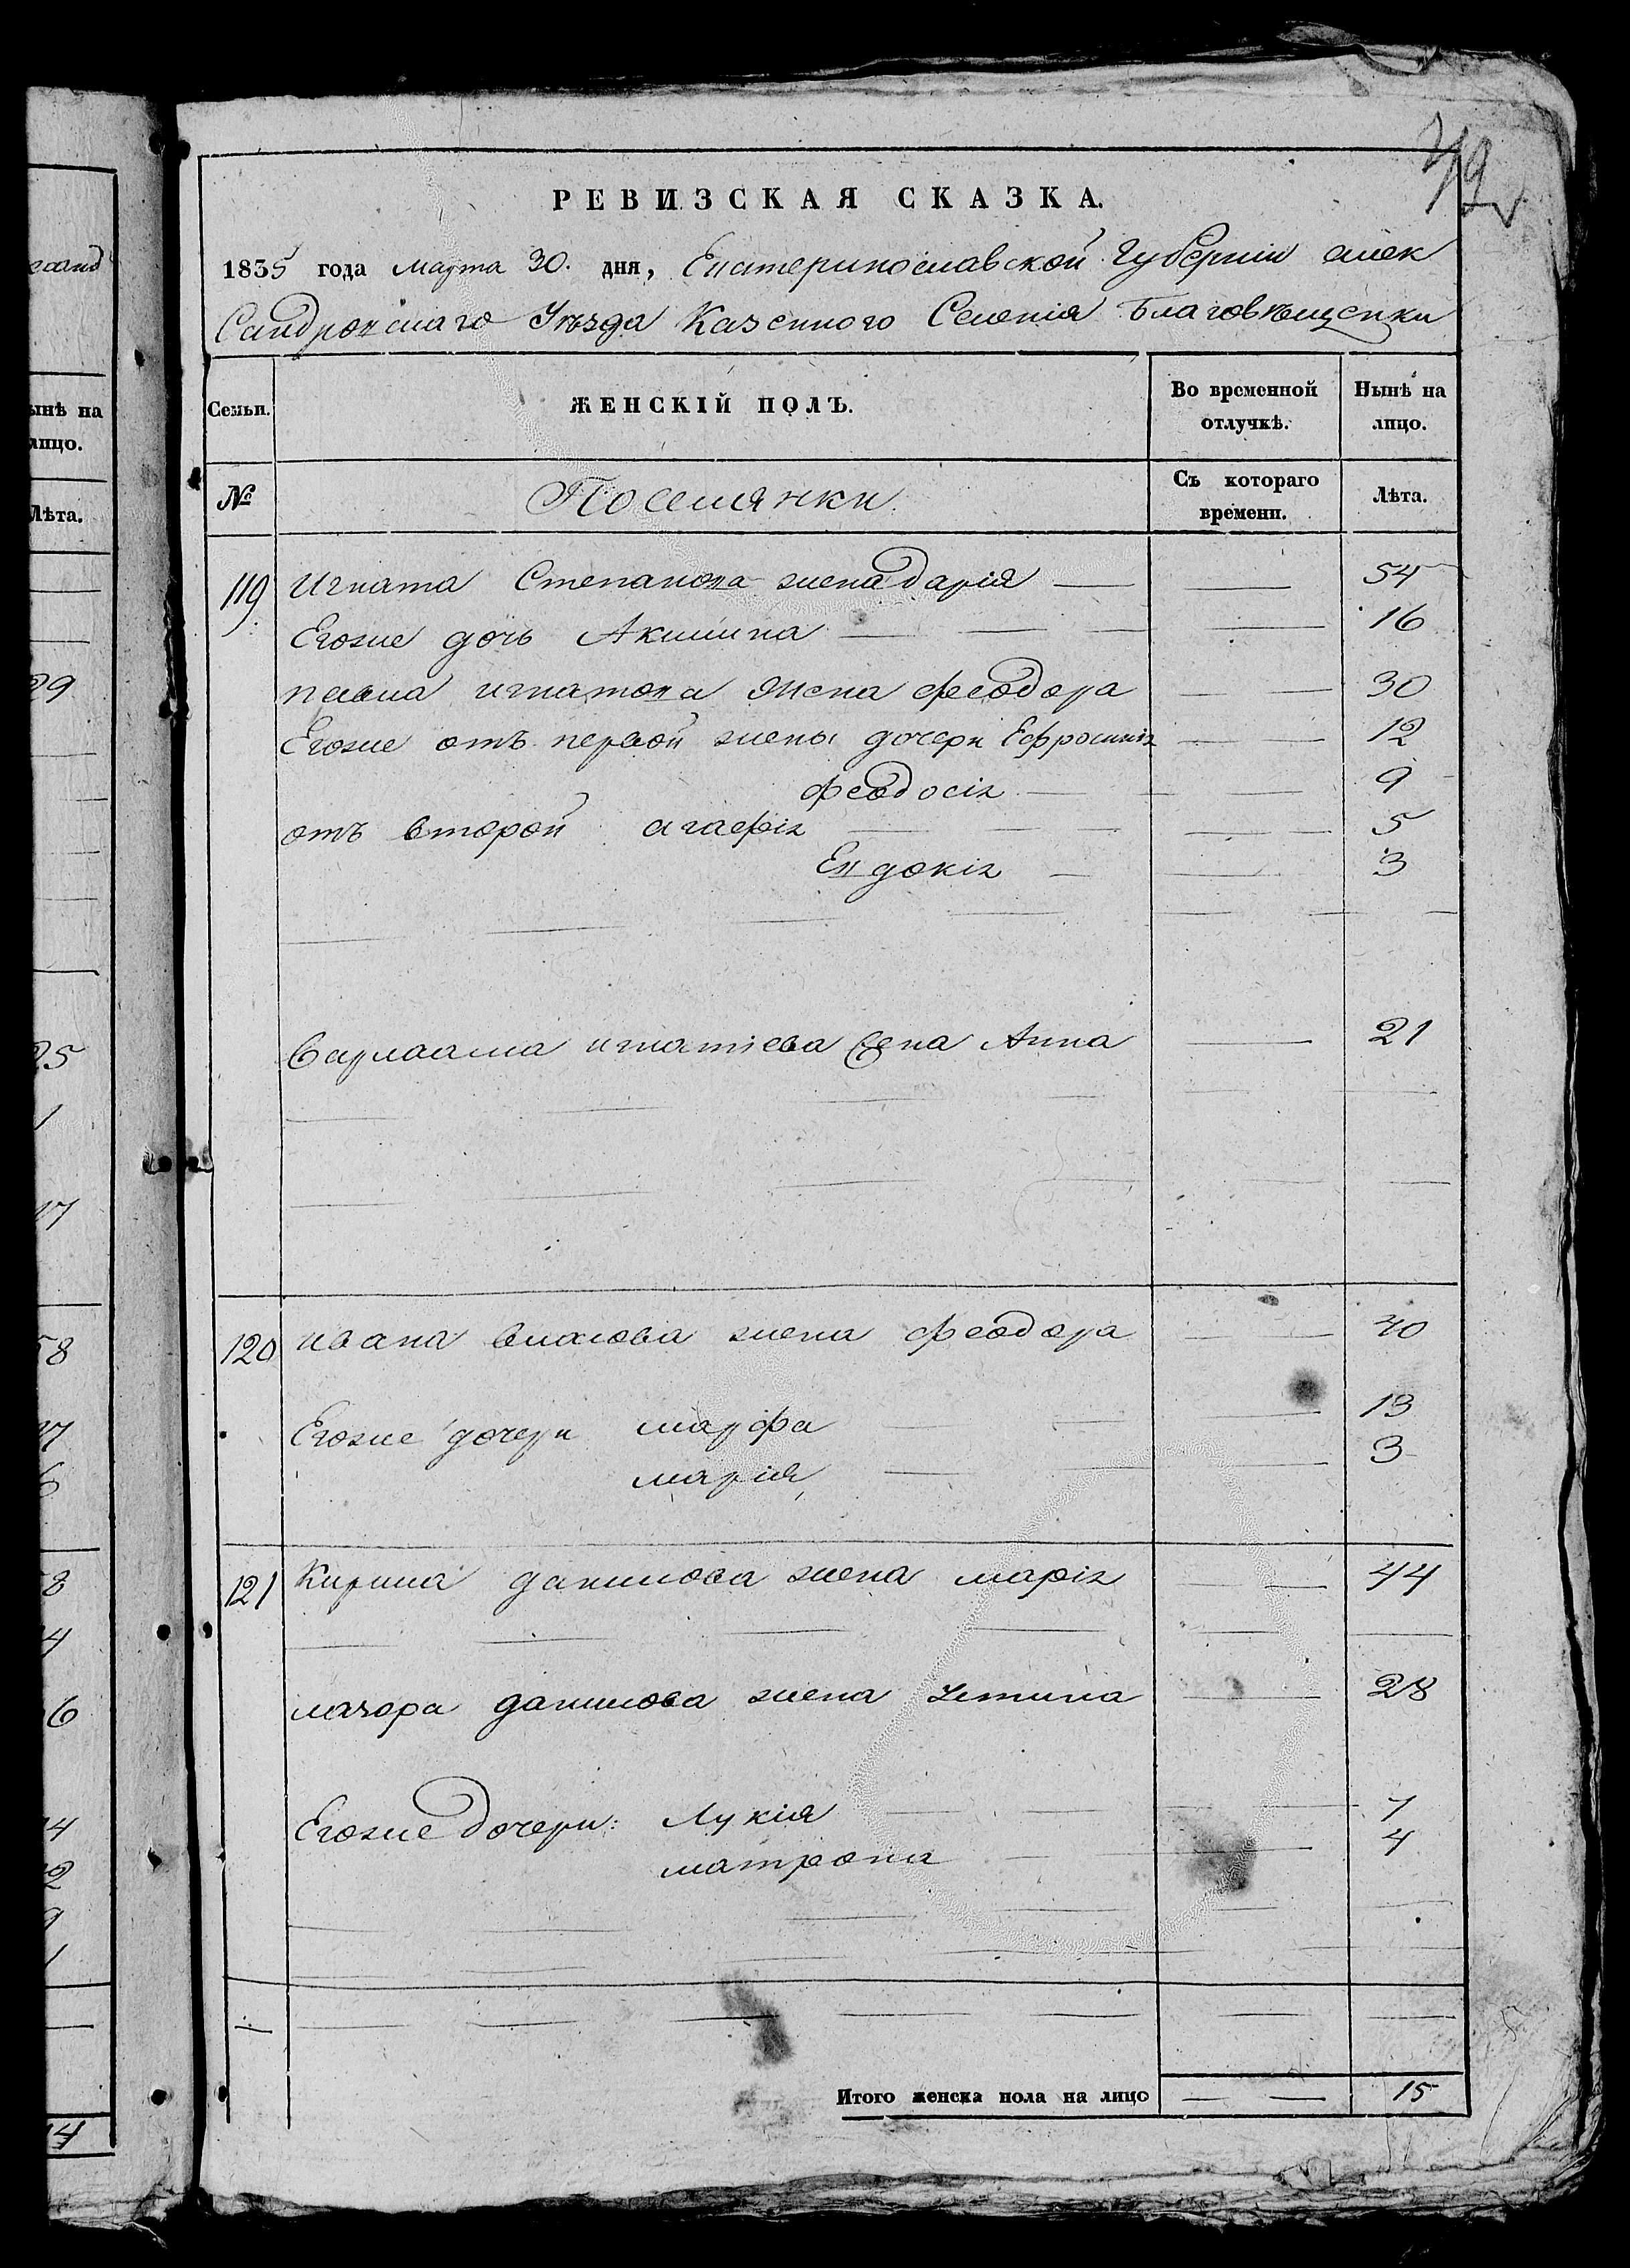 49
РЕВИЗСКАЯ СКАЗКА.
1835 года марта 30. дня, Екатеринославской Губерніи алек
Сандровскаго Уѣзда Казенного Селенія Благовѣщенки
Семьи.
ЖЕНСКІЙ ПОЛЪ.
Во временной отлучкѣ.
Нынѣ на лицо.
№
Поселянки
Съ котораго времени.
Лѣта.
119 Игната Степанова жена дарія 54
Егоже дочь Акилина 16
павла игнатова жена феодора 30
Егоже отъ первой жены дочери Ефросинія 12
феодосія 9
отъ второй агафія 5
Евдокія 3
Варлаама игнатіева жена Анна 21
120 ивана власова жена феодора 40
Егоже дочери марфа 13
марія 3
121 Кирила данилова жена марія 44
лазора данилова жена 28
Егоже дочери: Лукія 7
матрона 4
Итого женска пола на лицо 15
ынѣ на
лицо.
Лѣта.
29
25
1
17
58
17
6
8
4
6
4
2
9
1
14